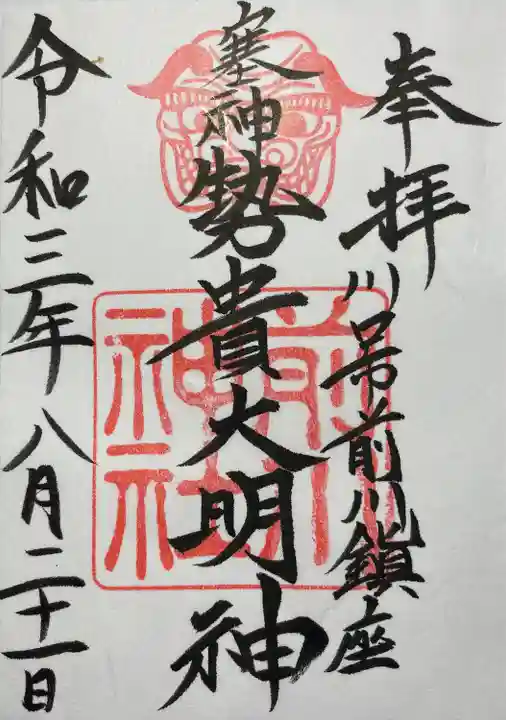 奉拝
川口市前川鎮座
塞神勢貴大明神
前川神社
令和三年八月二十一日